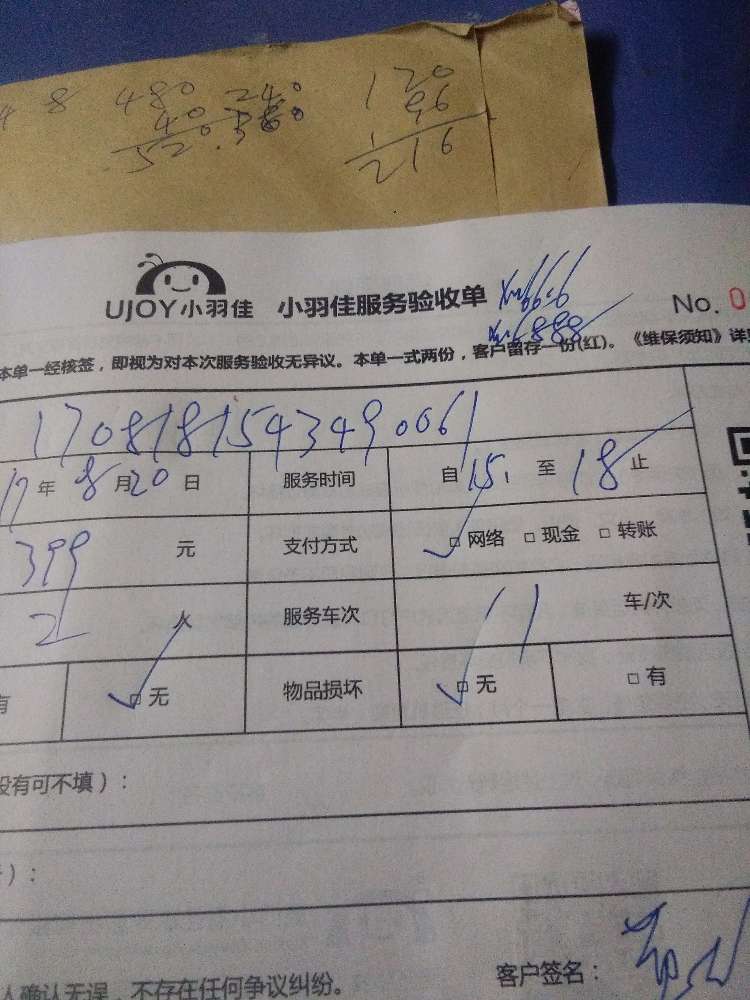 4 8 480 240 120
40 360 96
520 216
UJOY小羽佳 小羽佳服务验收单 No. 0
本单一经核签，即视为对本次服务验收无异议。本单一式两份，客户留存一份(红)。《维保须知》详
1708181543490061
17年8月20日 服务时间 自15 至18止
399元 支付方式 □网络 □现金 □转账
2人 服务车次 车/次
有 □无 物品损坏 □无 □有
没有可不填）：
）：
人确认无误，不存在任何争议纠纷。 客户签名：